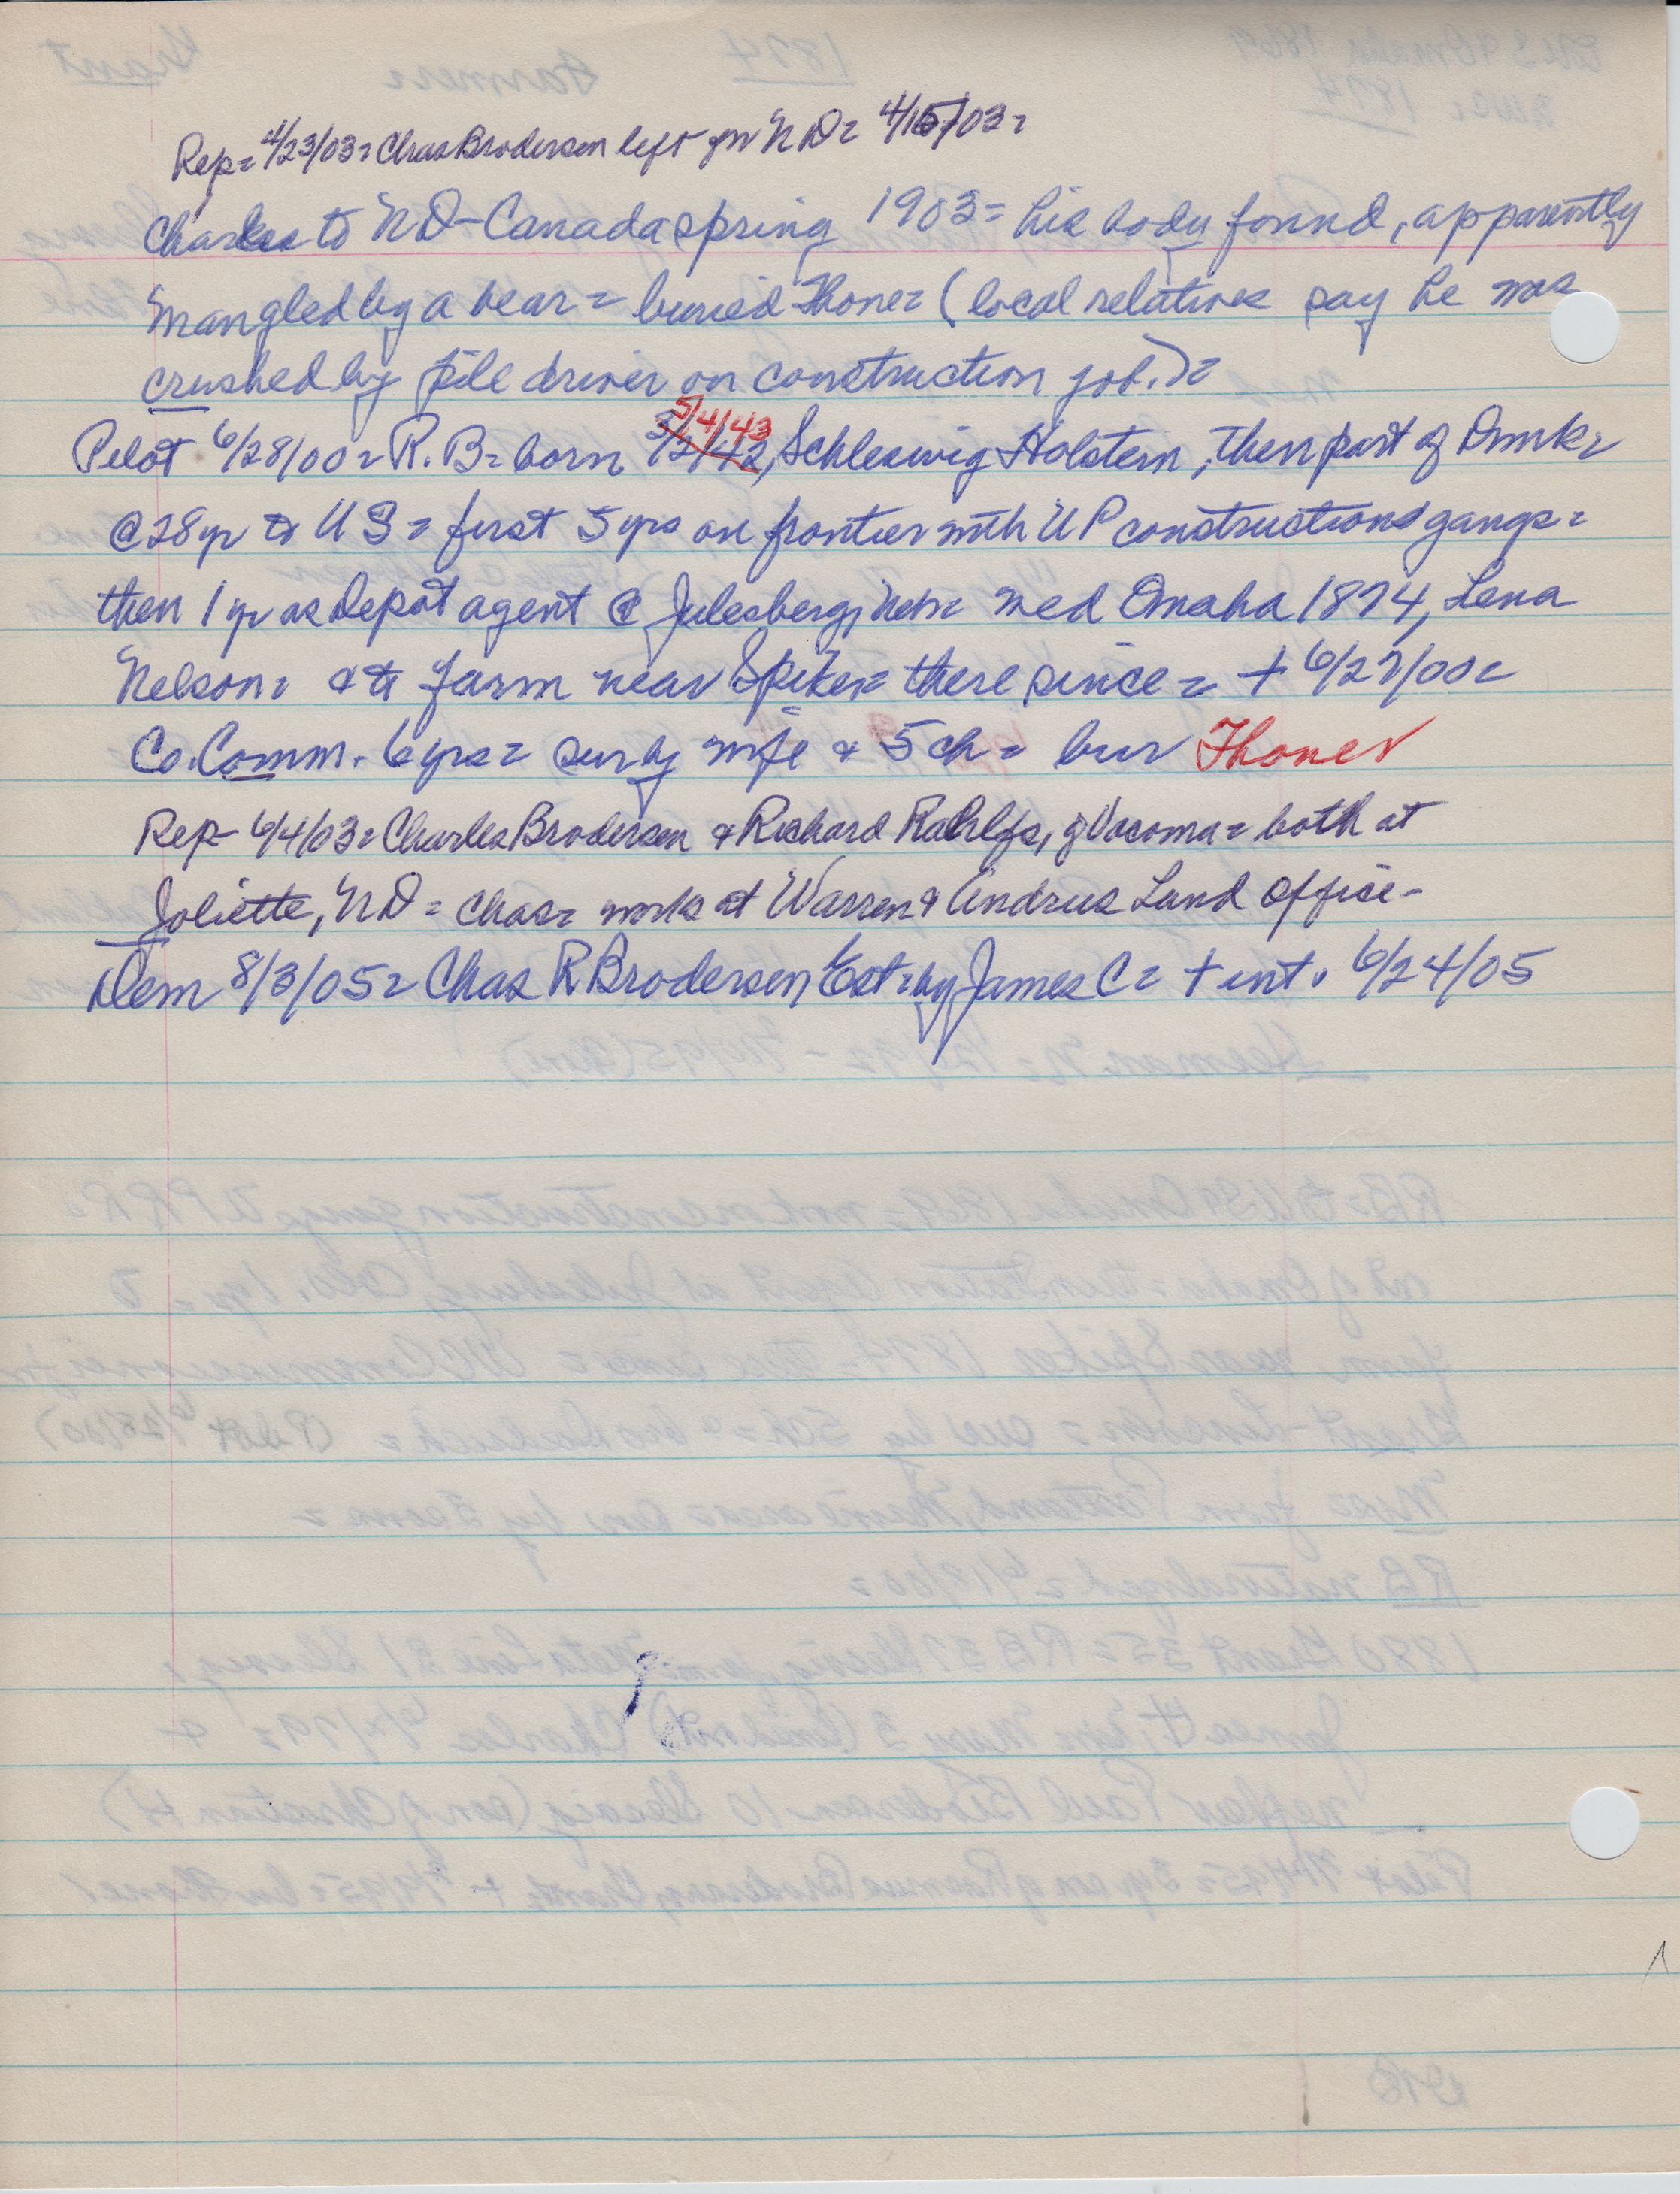 Rep= 4/23/03= Chas Brodersen left for ND= 4/15/03=
Charles to ND-Canada spring 1903= his body found, apparently
mangled by a bear= buried Thone= (local relatives say he was
crushed by pile driver on construction job.)=
Pilot 6/28/00= R.B= born 3/2/42 5/4/43, Schleswig Holstern, then part of Dnmk=
@28yr to US= first 5 yrs on frontier with UP constructions gangs=
then 1 yr as Depot agent @ Julesberg, Neb= med Omaha 1874, Lena
Nelson= & to farm near Spiker= there since= + 6/27/00=
Co.Comm. 6yrs= sur by wife & 5 ch= bur Thone ✓
Rep- 6/4/03= Charles Brodersen & Richard Rahlfs, of Vacoma= both at
Joliette, ND= Chas= works at Warren & Andrus Land Office-
Dem 8/3/05= Chas R Brodersen Est= by James C= + int. 6/24/05